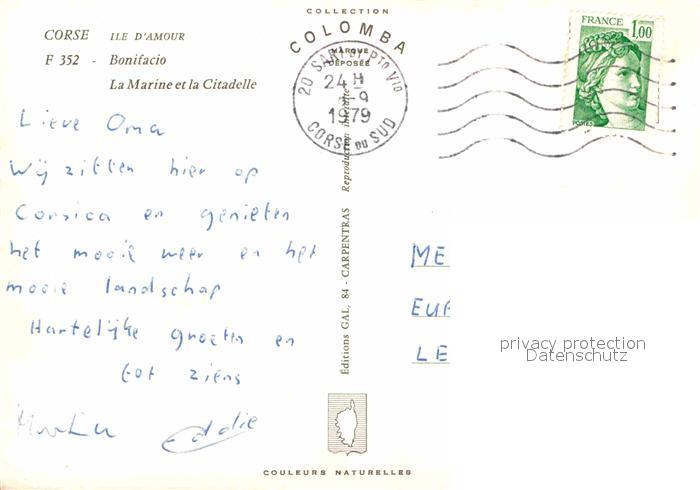 COLLECTION
COLOMBA
MARQUE
DÉPOSÉE
CORSE ILE D'AMOUR
F 352 - Bonifacio
La Marine et la Citadelle
Lieve Oma
Wij zitten hier op
Corsica en genieten
het mooie weer en het
mooie landschap
Hartelijke groeten en
tot ziens
Eddie
Reproduction interdite
Éditions GAL, 84 - CARPENTRAS
24 H
1979
CORSE DU SUD
FRANCE 1,00
POSTES
ME
EUR
LE
privacy protection
Datenschutz
COULEURS NATURELLES